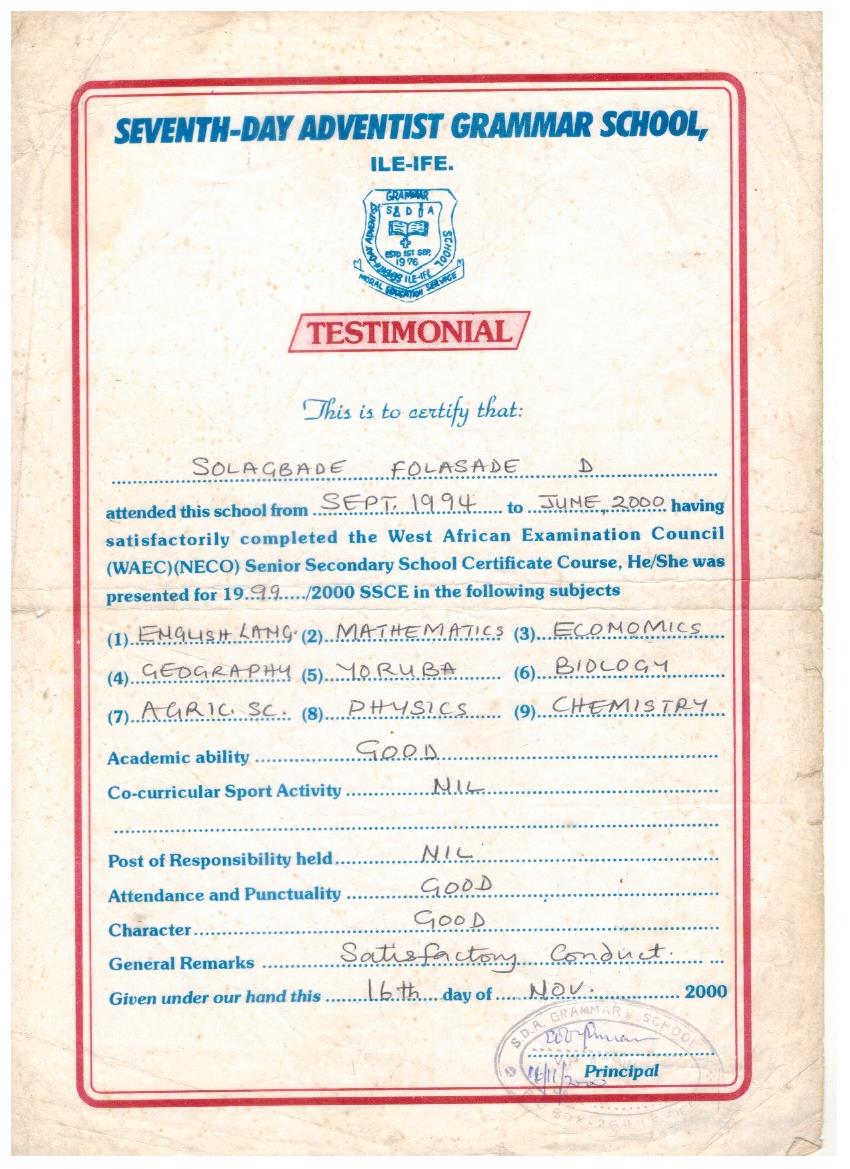 SEVENTH-DAY ADVENTIST GRAMMAR SCHOOL,
ILE-IFE.
GRAMMAR
SEVENTH-DAY ADVENTIST
SCHOOL
S D A
ESTD 1ST SEP.
1976
ILE-IFE
MORAL EDUCATION SERVICE
TESTIMONIAL
This is to certify that:
SOLAGBADE FOLASADE D
attended this school from SEPT. 1994 to JUNE, 2000 having
satisfactorily completed the West African Examination Council
(WAEC)(NECO) Senior Secondary School Certificate Course, He/She was
presented for 19..99..../2000 SSCE in the following subjects
(1) ENGLISH LANG. (2) MATHEMATICS (3) ECONOMICS
(4) GEOGRAPHY (5) YORUBA (6) BIOLOGY
(7) AGRIC. SC. (8) PHYSICS (9) CHEMISTRY
Academic ability GOOD
Co-curricular Sport Activity NIL
Post of Responsibility held NIL
Attendance and Punctuality GOOD
Character GOOD
General Remarks Satisfactory Conduct.
Given under our hand this 16th day of NOV. 2000
S.D.A. GRAMMAR SCHOOL
16/11/2000
Principal